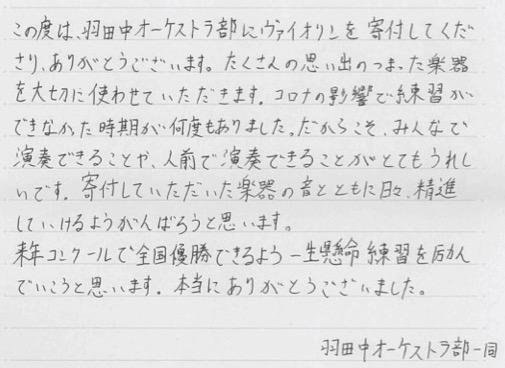 この度は、羽田中オーケストラ部にヴァイオリンを寄付してくだ
さり、ありがとうございます。たくさんの思い出のつまった楽器
を大切に使わせていただきます。コロナの影響で練習が
できなかった時期が何度もありました。だからこそ、みんなで
演奏できることや、人前で演奏できることがとてもうれし
いです。寄付していただいた楽器の音とともに日々、精進
していけるようがんばろうと思います。
来年コンクールで全国優勝できるよう一生懸命練習を
でいこうと思います。本当にありがとうございました。
羽田中オーケストラ部一同